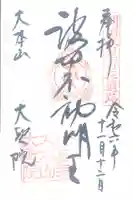 奉拝
令和二年
十一月十二日
波切不動明王
大本山
大聖院